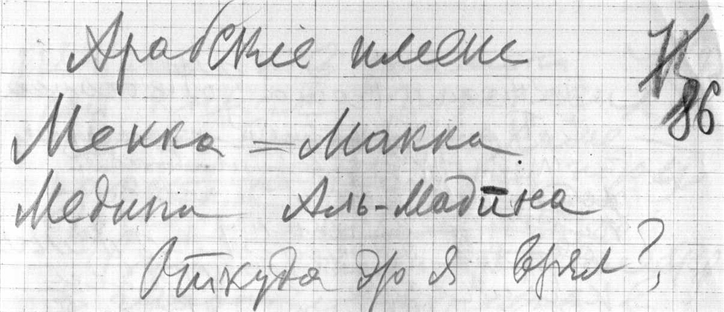 Арабскіе имена
86
Мекка = Макка
Медина Аль-Мадина
Откуда это я взял?